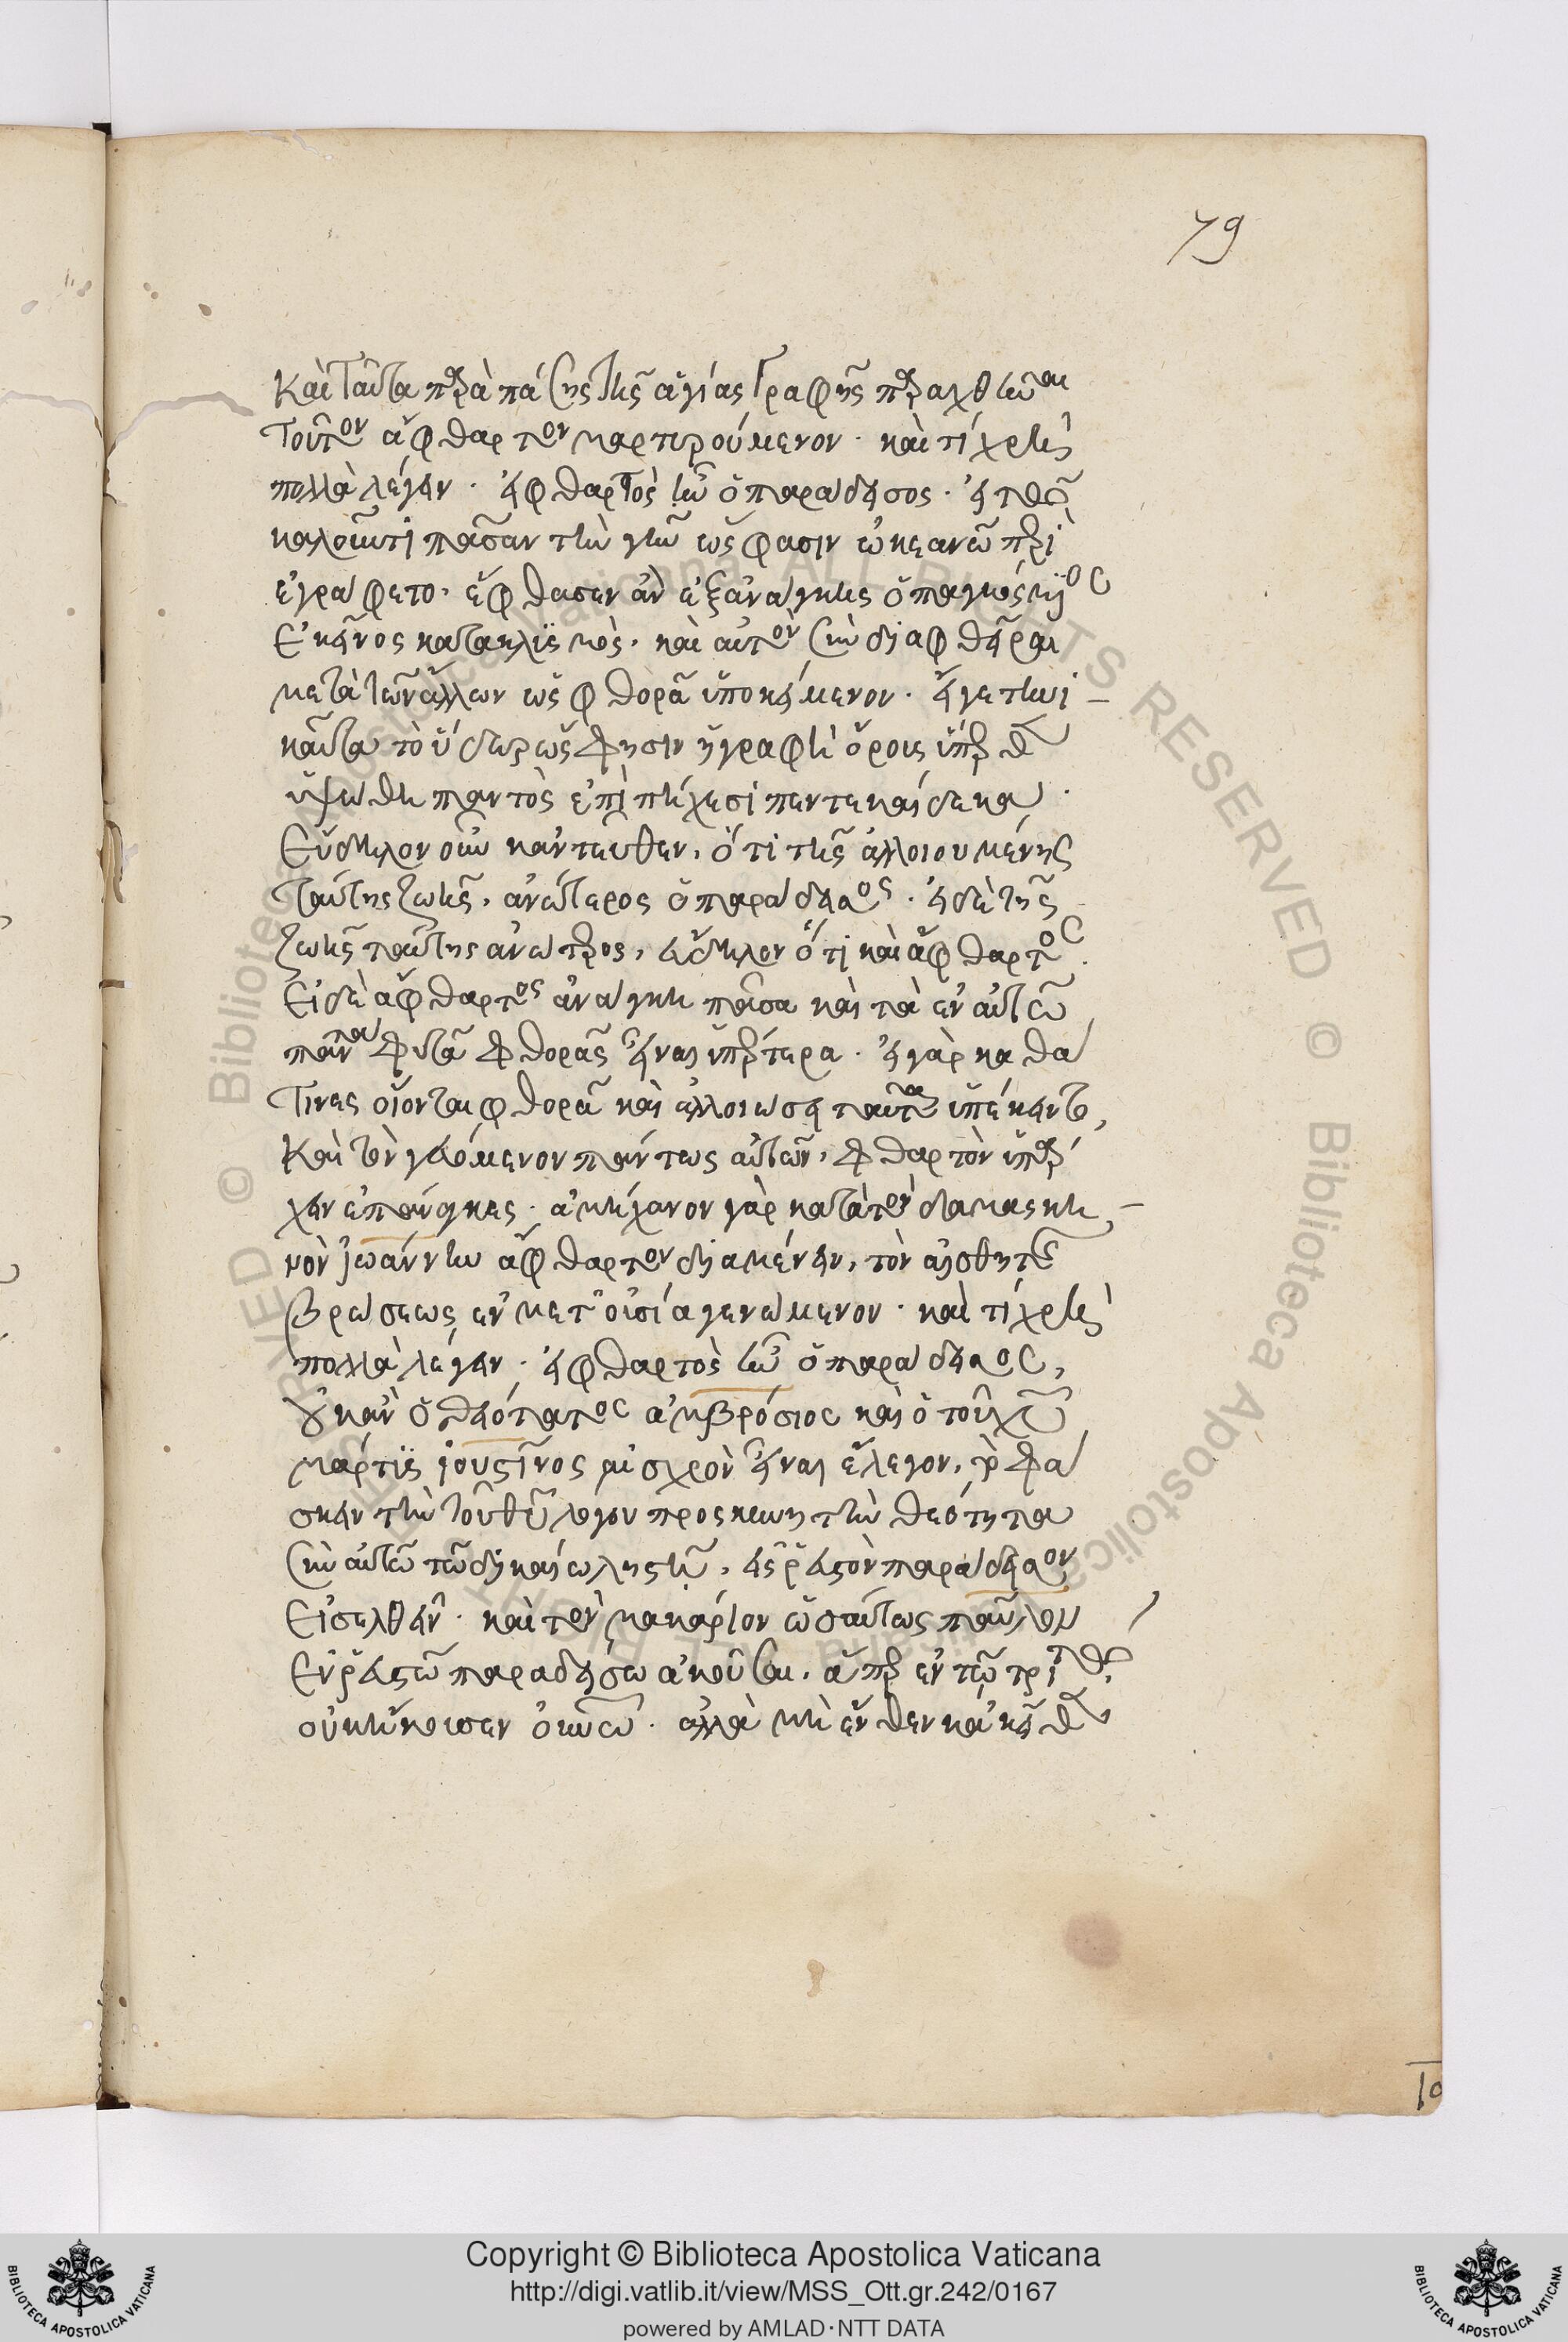 79
Καὶ ταῦτα παρὰ πάσης τῆς ἁγίας Γραφῆς παραχθῆναι
τοῦτον ἄφθαρτον μαρτυρούμενον · καὶ τί χρὴ
πολλὰ λέγειν · εἰ φθαρτὸς ἦν ὁ παράδεισος · εἴτε
καλοῦντι πᾶσαν τὴν γῆν ὥς φασιν ὠκεανῶ περι
εγράφετο · ἔφθασεν ἂν ἐξανάγκης ὁ παγκόσμιος
Ἐκεῖνος κατακλυσμὸς · καὶ αὐτὸν συνδιαφθεῖραι
μετὰ τῶν ἄλλων ὡς φθορᾶ ὑποκείμενον · εἴγε τηνι –
καῦτα τὸ ὕδωρ ὥς φησιν ἡ γραφὴ ὄρους ὑπὲρ
ὑψώθη παντὸς ἐπὶ πήχεσι πεντεκαίδεκα ·
Εὔδηλον οὖν κἀντεῦθεν, ὅτι τῆς ἀλλοιουμένης
ταύτης ζωῆς, ἀνώτερος ὁ παράδεισος · εἰ δὲ τῆς
ζωῆς ταύτης ἀνώτερος, εὔδηλον ὅτι καὶ ἄφθαρτος ·
Εἰ δὲ ἄφθαρτος ἀνάγκη πᾶσα καὶ τὰ ἐν αὐτῶ
πάντα φυτὰ φθορᾶς εἶναι ὑπέρτερα · εἰ γὰρ καθά
τινες οἴονται φθορᾶ καὶ ἀλλοιώσει ταῦτα ὑπέκειντο,
Καὶ τὸν γευόμενον πάντως αὐτῶν, φθαρτὸν ὑπάρ
χειν ἐπάναγκες · ἀμήχανον γὰρ κατὰ τὸν δαμασκη –
νὸν ἰωάννην ἄφθαρτον διαμένειν, τὸν αἰσθητῆς
βρώσεως ἐν μετουσία γενόμενον · καὶ τί χρὴ
πολλὰ λέγειν · εἰ φθαρτὸς ἦν ὁ παράδεισος,
οὐκ ἂν ὁ θειότατος ἀμβρόσιος καὶ ὁ τοῦ χυ
μάρτυς ἰουστῖνος αἰσχρὸν εἶναι ἔλεγον, τὸ φά
σκειν τὴν τοῦ θυ λόγου προσκυνητὴν θεότητα
σὺν αὐτῶ τῶ δικαίω ληστῆ, εἰς ῥευστὸν παράδεισον
Εἰσελθεῖν · καὶ τὸν μακάριον ὡσαύτως παῦλον
Ἐν ῥευστῶ παραδείσω ἀκοῦσαι, ἅπερ ἐν τῶ τρίτω
οὐκ ἤκουσεν οὐνῶ · ἀλλὰ μὴ ἔνθεν κἀκεῖθεν